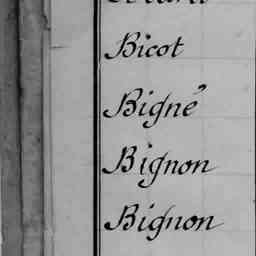 Bicot
Bigné
Bignon
Bignon